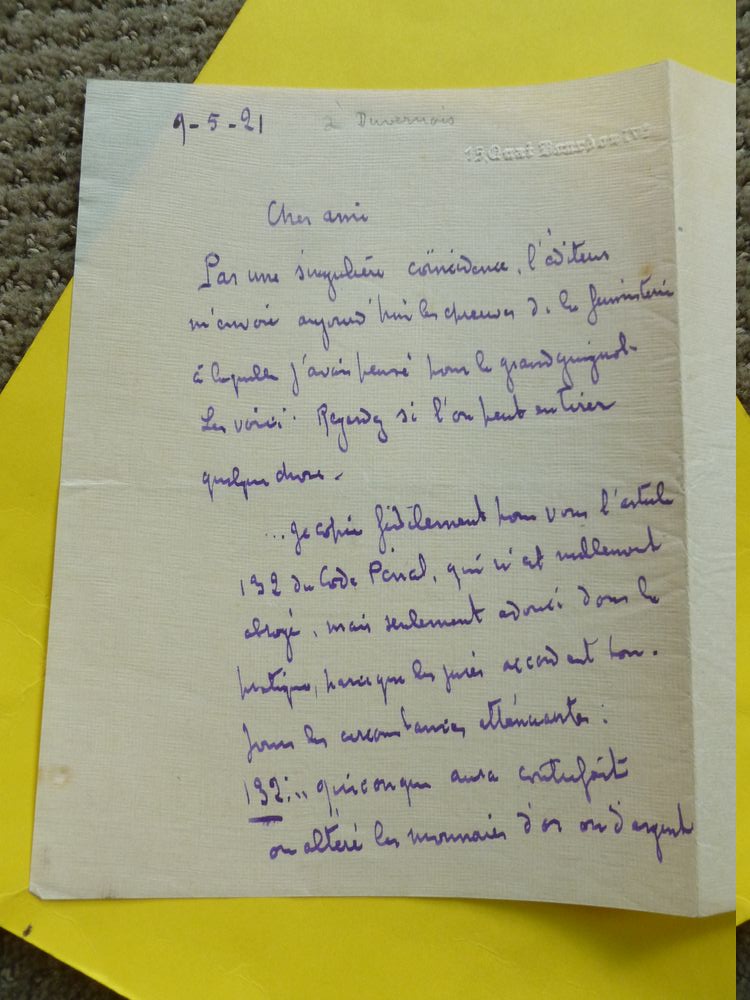 9-5-21
à Duvernois
15, Quai Bourbon IVe
Cher ami
Par une singulière coïncidence, l'éditeur
m'envoie aujourd'hui les épreuves de la
à laquelle j'avais pensé pour le grand guignol.
Les voici. Regardez si l'on peut en tirer
quelque chose.
... Je copie fidèlement pour vous l'article
132 du Code Pénal, qui n'est nullement
abrogé, mais seulement adouci dans la
pratique, parce que les jurés accordent tou-
jours les circonstances atténuantes :
132 : .. quiconque aura contrefait
ou altéré les monnaies d'or ou d'argent